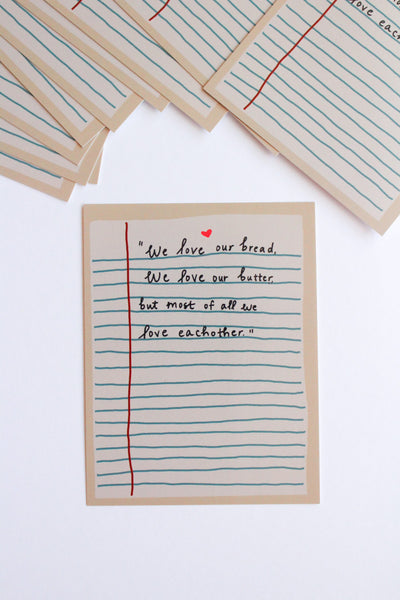 love our
love each
"We love our bread,
We love our butter,
but most of all we
love eachother."